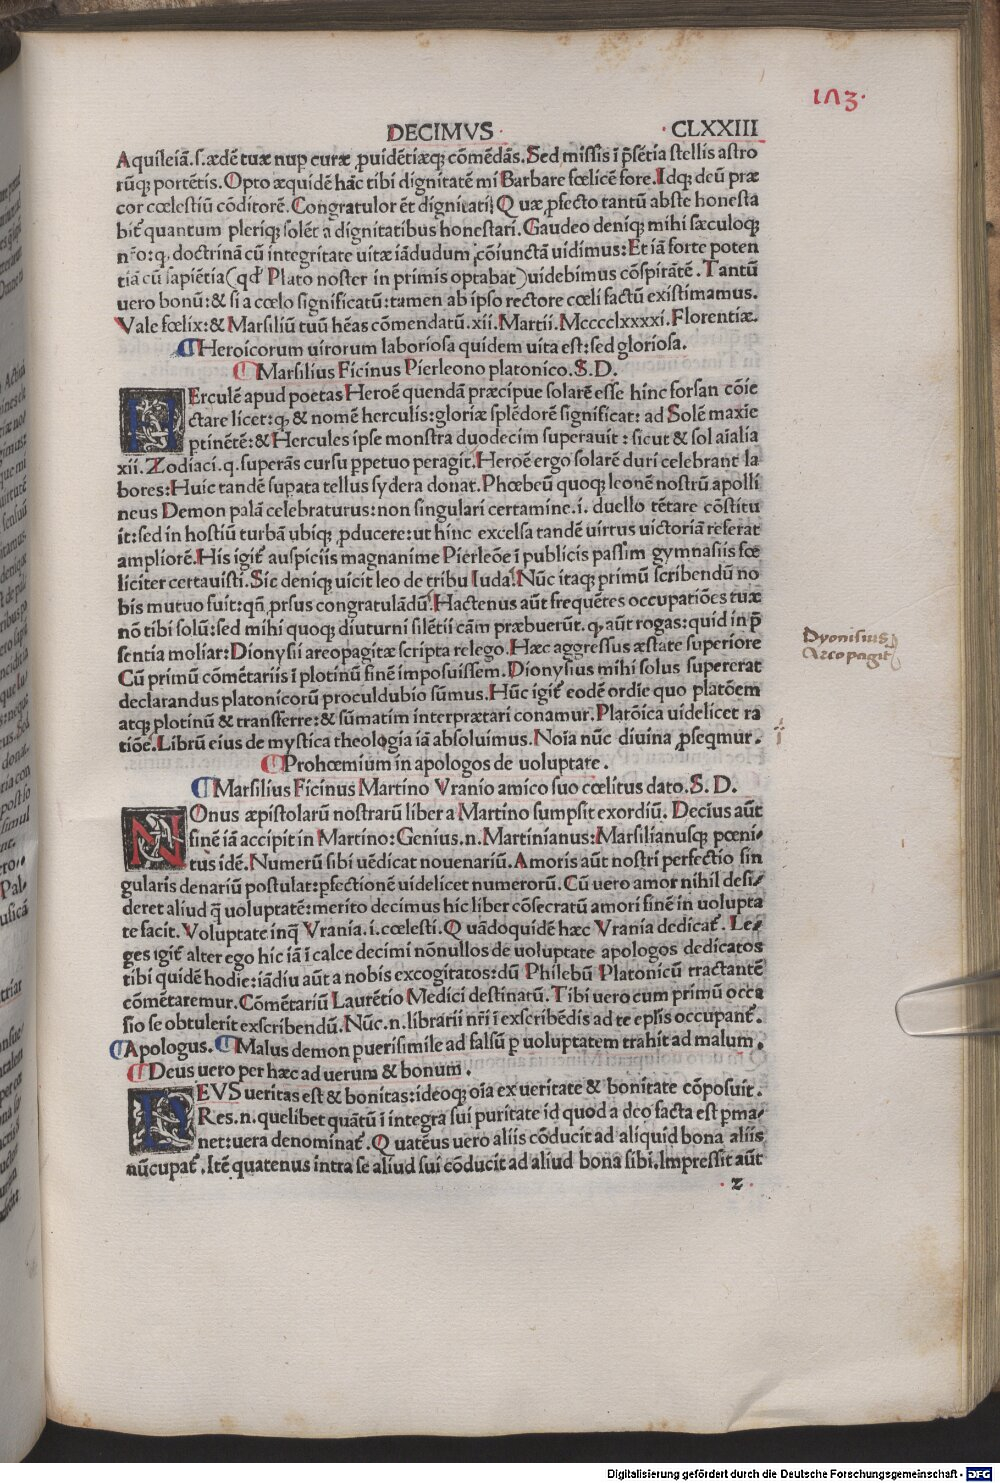 173.
DECIMVS · · CLXXIII
Aquileiā.ſ.ædē tuæ nup curæ ꝓuidētiæq; cōmēdās. Sed miſſis ī p̄ſētia ſtellis aſtro
rūq; portētis. Opto æquidē hāc tibi dignitatē mi Barbare fœlicē fore. Idq; deū præ
cor cœleſtiū cōditorē. Congratulor ēt dignitati: Quæ ꝓfecto tantū abs te honeſta
bit᷑ quantum pleriq; ſolēt a dignitatibus honeſtari. Gaudeo deniq; mihi ſæculoq;
nr̄o: q. doctrinā cū integritate uitæ iādudum cōiunctā uidimus: Et iā forte poten
tiā cū ſapiētia (qd Plato noſter in primis optabat) uidebimus cōſpirātē. Tantū
uero bonū: & ſi a cœlo ſignificatū: tamen ab ipſo rectore cœli factū exiſtimamus.
Vale fœlix: & Marſiliū tuū hēas cōmendatū. xii. Martii. Mcccclxxxxi. Florentiæ.
Heroicorum uirorum laborioſa quidem uita eſt: ſed glorioſa.
Marſilius Ficinus Pierleono platonico. S. D.
HErculē apud poetas Heroē quendā præcipue ſolarē eſſe hinc forſan cōie
ctare licet: q, & nomē herculis: gloriæ ſplēdorē ſignificat: ad Solē maxīe
ꝑtinētē: & Hercules ipſe monſtra duodecim ſuperauit: ſicut & ſol aīalia
xii. Zodiaci. q. ſuperās curſu ꝑpetuo peragit. Heroē ergo ſolarē duri celebrant la
bores: Huic tandē ſupata tellus ſydera donat. Phœbeū quoq; leonē noſtrū apolli
neus Demon palā celebraturus: non ſingulari certamine .i. duello tētare cōſtitu
it: ſed in hoſtiū turbā ubiq; ꝓducere: ut hinc excelſa tandē uirtus uictoriā referat
ampliorē. His igit᷑ auſpiciis magnanime Pierleōe ī publicis paſſim gymnaſiis fœ
liciter certauiſti. Sic deniq; uicit leo de tribu Iuda. Nūc itaq; primū ſcribendū no
bis mutuo fuit: qñ ꝓrſus congratulādū. Hactenus aūt frequētes occupatiōes tuæ
nō tibi ſolū: ſed mihi quoq; diuturni ſilētii cām præbuerūt. q, aūt rogas: quid in p̄
ſentia moliar: Dionyſii areopagitæ ſcripta relego. Hæc aggreſſus æſtate ſuperiore
Cū primū cōmētariis ī plotinū finē impoſuiſſem. Dionyſius mihi ſolus ſupererat
declarandus platonicorū proculdubio ſūmus. Hūc igit᷑ eodē ordīe quo platōem
atq; plotinū & trāſferre: & ſūmatim interprætari conamur. Platōica uidelicet ra
tiōe. Librū eius de myſtica theologia iā abſoluimus. Noīa nūc diuina ꝓſeqmur.
Dyonisius
Areopagit
Prohœmium in apologos de uoluptate.
Marſilius Ficinus Martino Vranio amico ſuo cœlitus dato. S. D.
NOnus æpiſtolarū noſtrarū liber a Martino ſumpſit exordiū. Decius aūt
finē iā accipit in Martino: Genius .n. Martinianus: Marſilianuſq; pœni-
tus idē. Numerū ſibi uēdicat nouenariū. Amoris aūt noſtri perfectio ſin
gularis denariū poſtulat: ꝑfectionē uidelicet numerorū. Cū uero amor nihil deſi-
deret aliud q̄ uoluptatē: merito decimus hic liber cōſecratū amori finē in uolupta
te facit. Voluptate inq̄ Vrania .i. cœleſti. Quādoquidē hæc Vrania dedicat᷑. Le-
ges igit᷑ alter ego hic iā ī calce decimi nōnullos de uoluptate apologos dedicatos
tibi quidē hodie: iādiu aūt a nobis excogitatos: dū Philebū Platonicū tractantē
cōmētaremur. Cōmētariū Laurētio Medici deſtinatū. Tibi uero cum primū occa
ſio ſe obtulerit exſcribendū. Nūc .n. librarii nr̄i ī exſcribēdis ad te epl̄is occupant᷑.
Apologus. Malus demon pueriſimile ad falſū p uoluptatem trahit ad malum.
Deus uero per hæc ad uerum & bonum.
DEVS ueritas eſt & bonitas: ideoq; oīa ex ueritate & bonitate cōpoſuit.
Res .n. quelibet quātū ī integra ſui puritate id quod a deo facta eſt ꝑma-
net: uera denominat᷑. Quatēus uero aliis cōducit ad aliquid bona aliis
nūcupat᷑. Itē quatenus intra ſe aliud ſui cōducit ad aliud bona ſibi. Impreſſit aūt
z
Digitalisierung gefördert durch die Deutsche Forschungsgemeinschaft - DFG